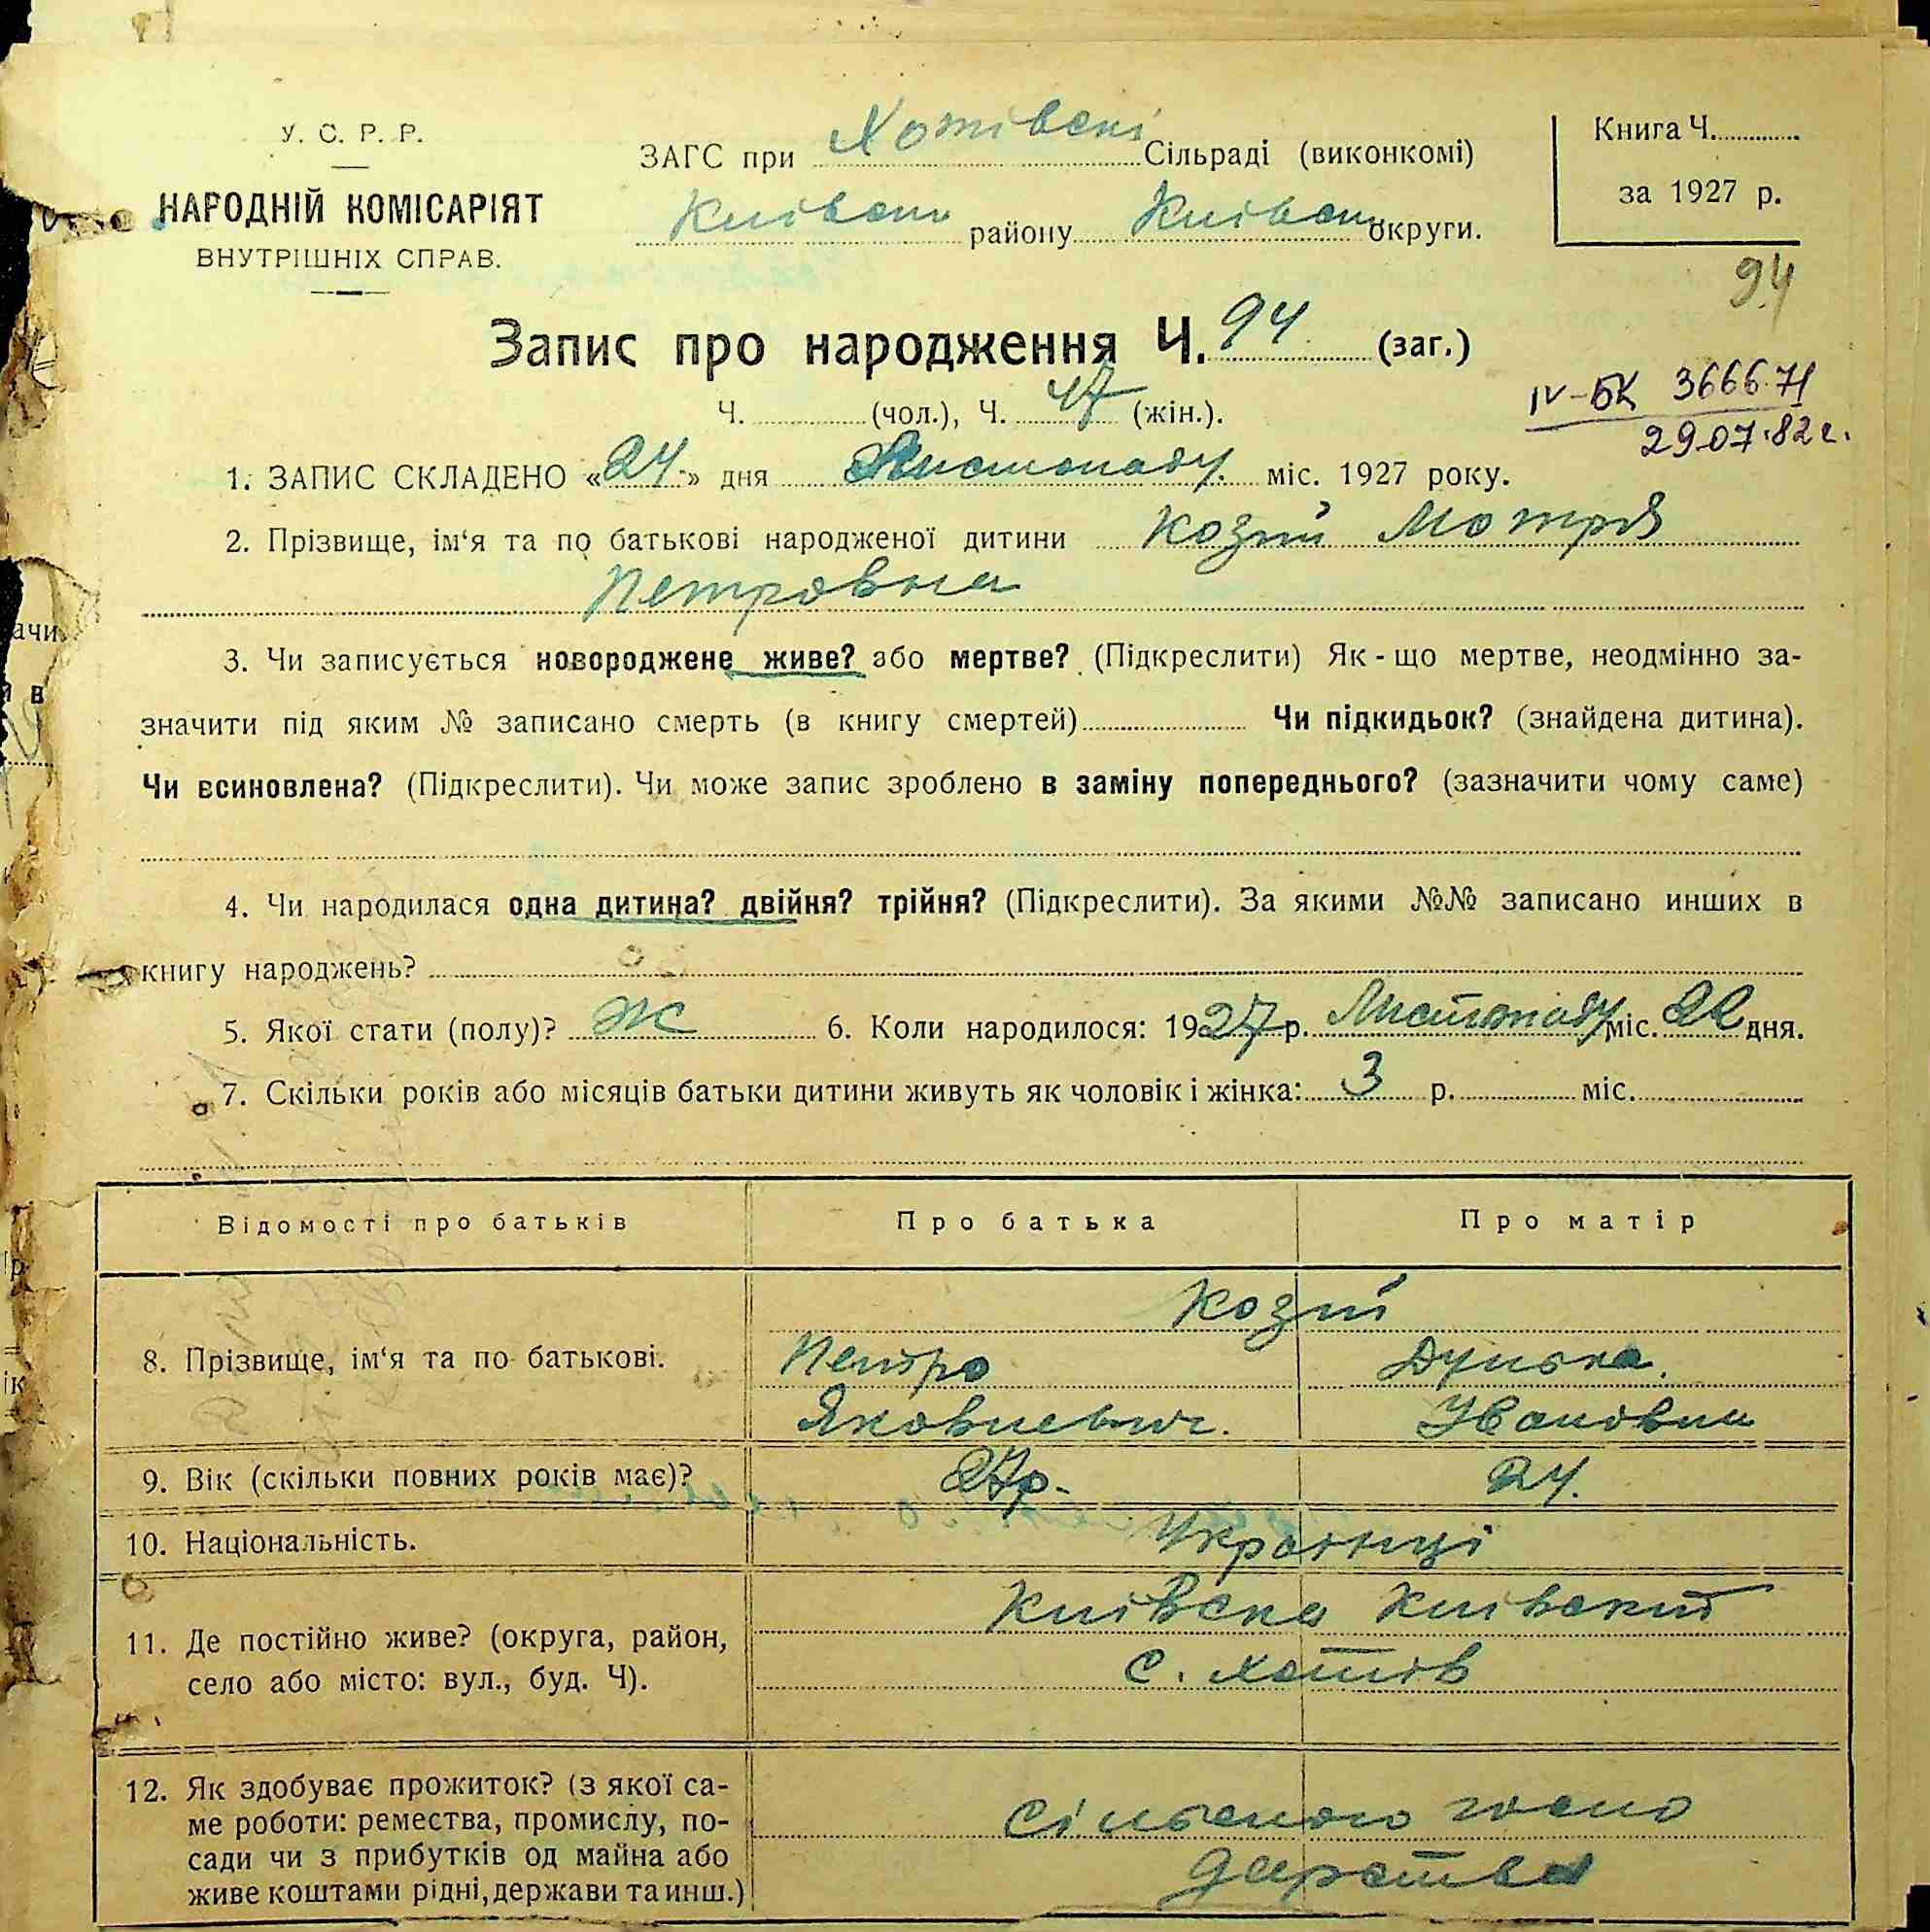 У. С. Р. Р.
НАРОДНІЙ КОМІСАРІЯТ
ВНУТРІШНІХ СПРАВ.
ЗАГС при Хотівскі Сільраді (виконкомі)
Київськ району Київськ округи.
Книга Ч.
за 1927 р.
94
Запис про народження Ч. 94 (заг.)
Ч. (чол.), Ч. 47 (жін.).
IV-БК 366671
29.07.82г.
1. ЗАПИС СКЛАДЕНО «24» дня Листопаду міс. 1927 року.
2. Прізвище, ім‘я та по батькові народженої дитини Козій Мотря
Петровна
3. Чи записується новороджене живе? або мертве? (Підкреслити) Як-що мертве, неодмінно за-
значити під яким № записано смерть (в книгу смертей) Чи підкидьок? (знайдена дитина).
Чи всиновлена? (Підкреслити). Чи може запис зроблено в заміну попереднього? (зазначити чому саме)
4. Чи народилася одна дитина? двійня? трійня? (Підкреслити). За якими №№ записано инших в
книгу народжень?
5. Якої стати (полу)? Ж 6. Коли народилося: 1927 р. Листопаду міс. 22 дня.
7. Скільки років або місяців батьки дитини живуть як чоловік і жінка: 3 р. міс.
Відомості про батьків Про батька Про матір
Козій
8. Прізвище, ім‘я та по батькові. Петро Дунька.
Яковлевич. Ивановна
9. Вік (скільки повних років має)? 27р. 24.
10. Національність. Українці
Київска Київский
11. Де постійно живе? (округа, район,
село або місто: вул., буд. Ч). с. Хотів
12. Як здобуває прожиток? (з якої са-
ме роботи: ремества, промислу, по- Сільского госпо
сади чи з прибутків од майна або
живе коштами рідні, держави та инш.) дарства